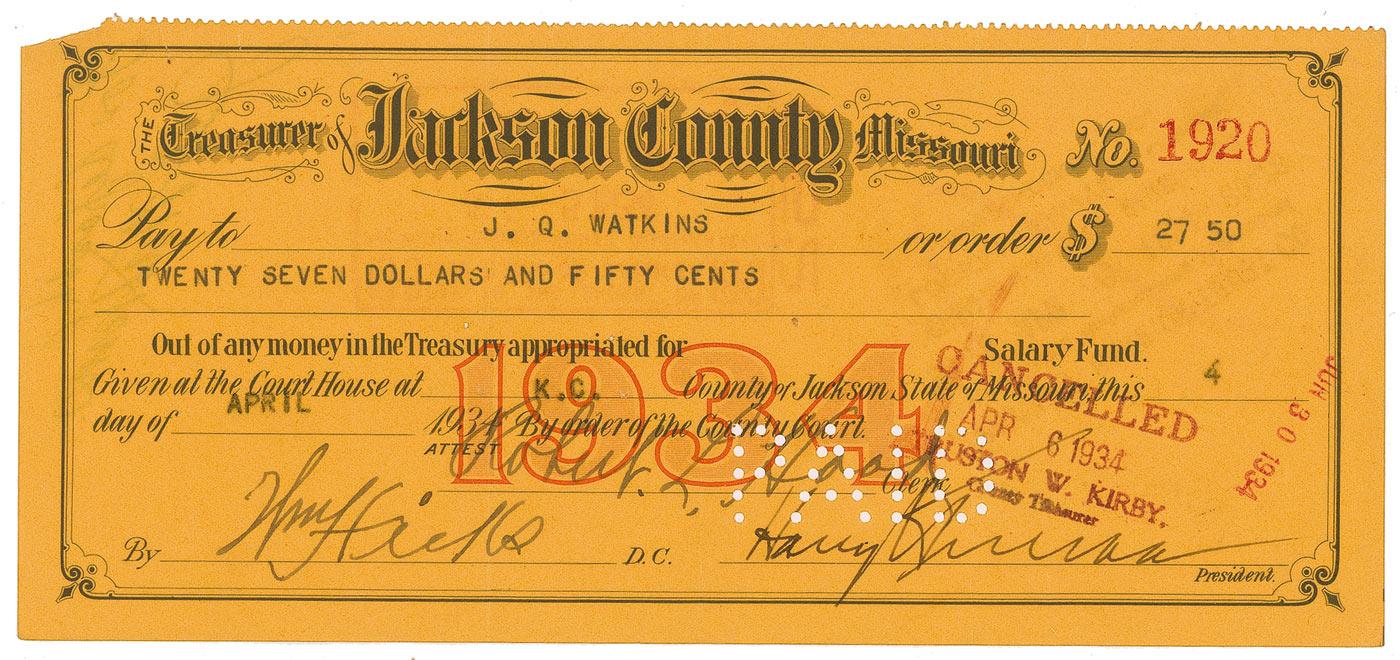 THE Treasurer of Jackson County Missouri No. 1920
Pay to J. Q. WATKINS or order $ 27 50
TWENTY SEVEN DOLLARS AND FIFTY CENTS
Out of any money in the Treasury appropriated for Salary Fund.
Given at the Court House at K.C. County of Jackson State of Missouri, this 4
day of APRIL 1934 By order of the County Court.
1934
CANCELLED
APR 6 1934
W. KIRBY,
County Treasurer
JUN 30 1934
ATTEST Robert L. Hood Clerk,
By Wm Hicks D.C. Harry S Truman
President.
PAID